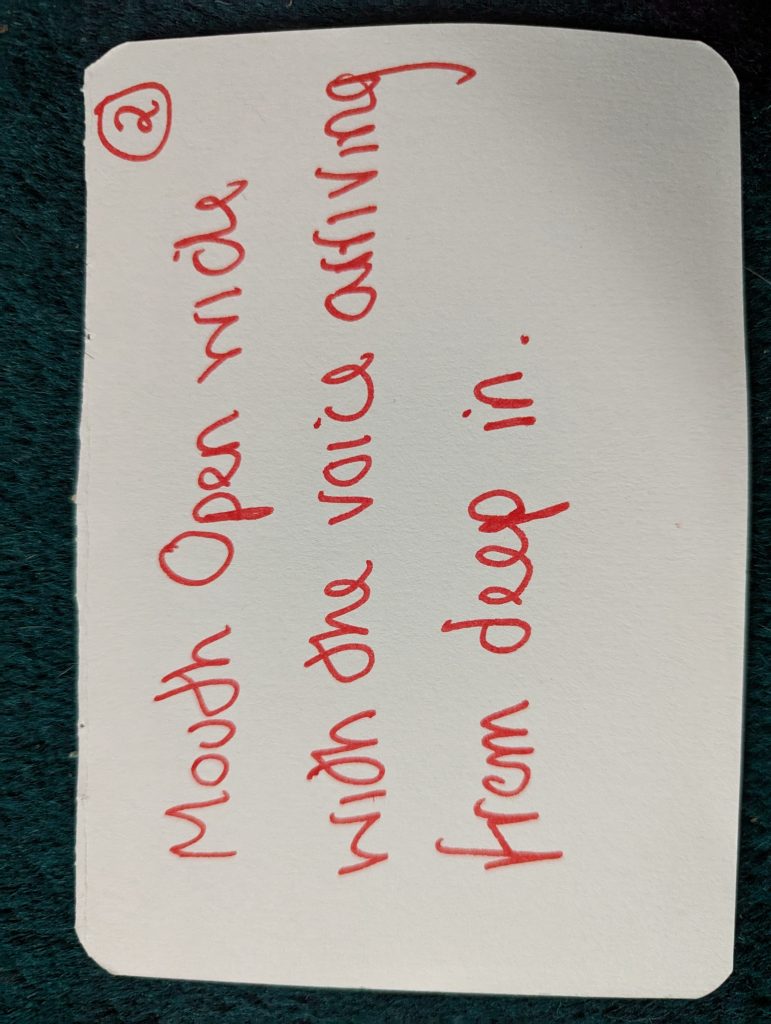 2
Mouth Open wide
with the voice arriving
from deep in.